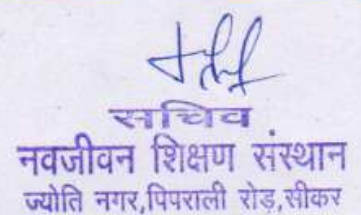 सचिव
नवजीवन शिक्षण संस्थान
ज्योति नगर,पिपराली रोड़,सीकर